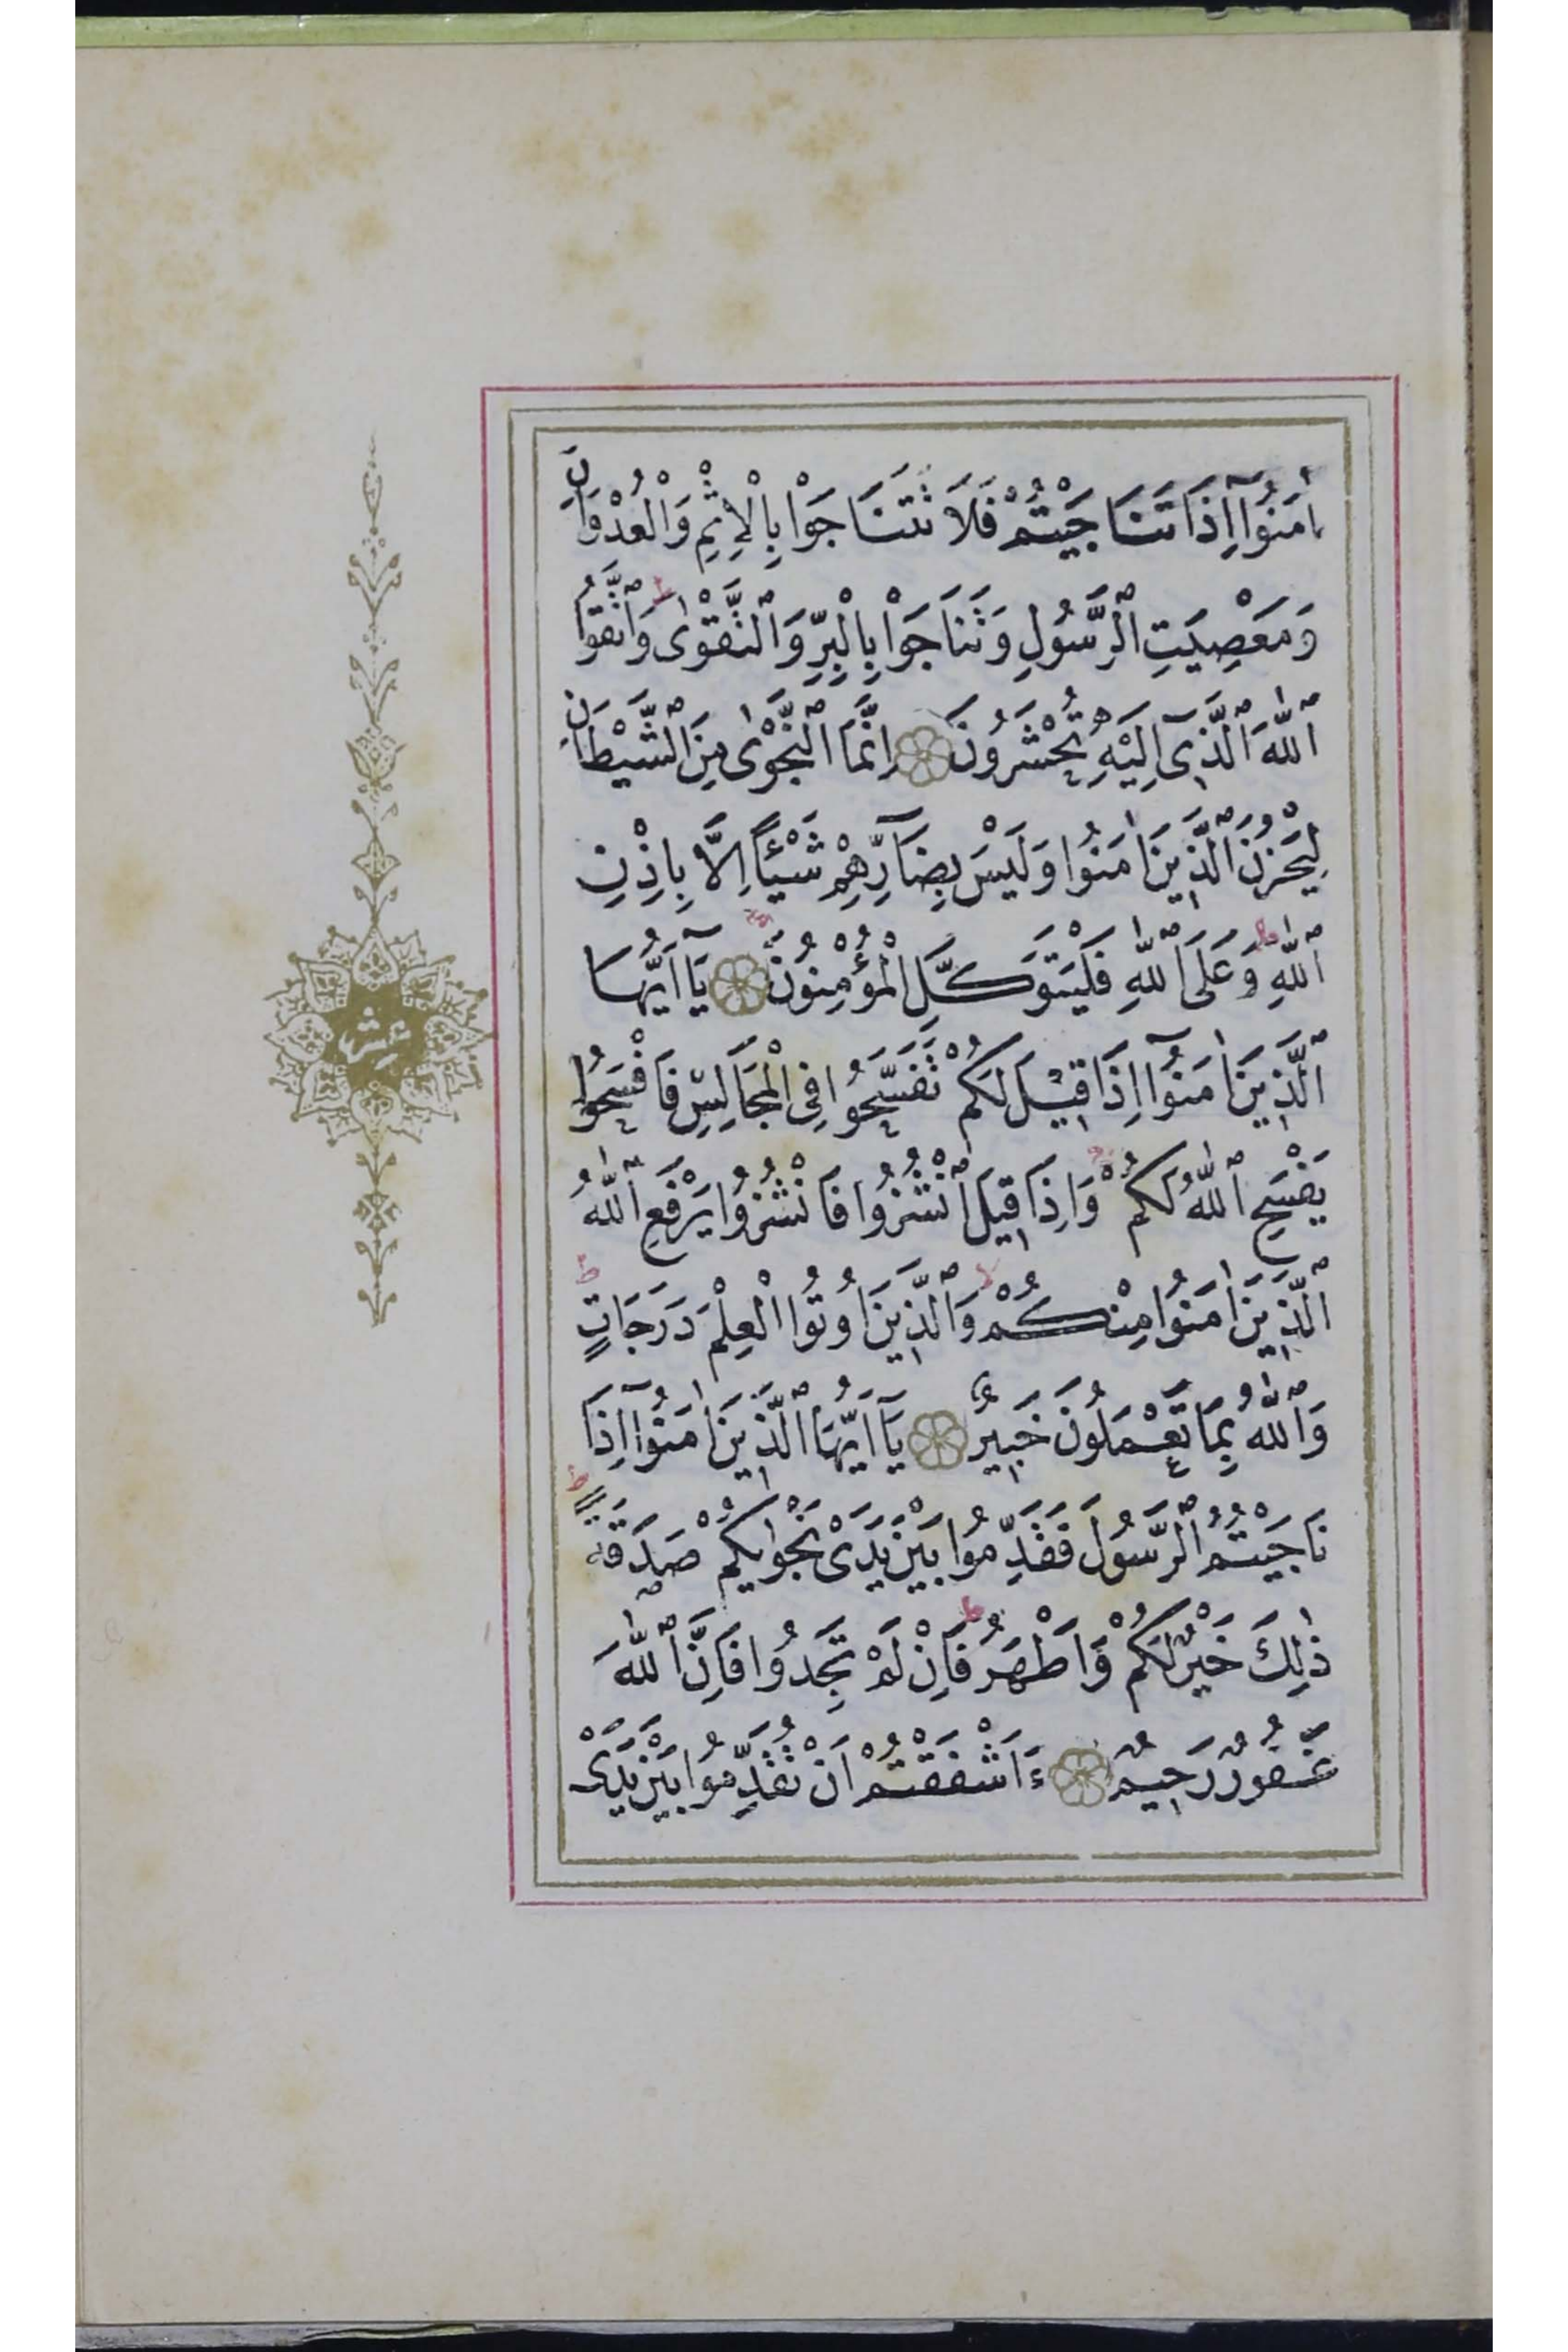 اٰمَنُوٓا اِذَا تَنَاجَيْتُمْ فَلَا تَتَنَاجَوْا بِالْاِثْمِ وَالْعُدْوَانِ
وَمَعْصِيَتِ ٱلرَّسُولِ وَتَنَاجَوْا بِالْبِرِّ وَٱلتَّقْوٰى ط وَٱتَّقُوا
ٱللّٰهَ ٱلَّذِىٓ اِلَيْهِ تُحْشَرُونَ اِنَّمَا ٱلنَّجْوٰى مِنَ ٱلشَّيْطَانِ
لِيَحْزُنَ ٱلَّذِينَ اٰمَنُوا وَلَيْسَ بِضَآرِّهِمْ شَيْـًٔا اِلَّا بِاِذْنِ
ٱللّٰهِ ط وَعَلَى ٱللّٰهِ فَلْيَتَوَكَّلِ الْمُؤْمِنُونَ يَآ اَيُّهَا
ٱلَّذِينَ اٰمَنُوٓا اِذَا قِيلَ لَكُمْ تَفَسَّحُوا فِى الْمَجَالِسِ فَافْسَحُوا
يَفْسَحِ ٱللّٰهُ لَكُمْ وَاِذَا قِيلَ ٱنْشُزُوا فَانْشُزُوا يَرْفَعِ ٱللّٰهُ
ٱلَّذِينَ اٰمَنُوا مِنْكُمْ لا وَٱلَّذِينَ اُوتُوا الْعِلْمَ دَرَجَاتٍ ط
وَٱللّٰهُ بِمَا تَعْمَلُونَ خَبِيرٌ ع يَآ اَيُّهَا ٱلَّذِينَ اٰمَنُوٓا اِذَا
نَاجَيْتُمُ ٱلرَّسُولَ فَقَدِّمُوا بَيْنَ يَدَىْ نَجْوٰيكُمْ صَدَقَةً ط
ذٰلِكَ خَيْرٌ لَكُمْ وَاَطْهَرُ ط فَاِنْ لَمْ تَجِدُوا فَاِنَّ ٱللّٰهَ
غَفُورٌ رَحِيمٌ ءَاَشْفَقْتُمْ اَنْ تُقَدِّمُوا بَيْنَ يَدَىْ
عشر